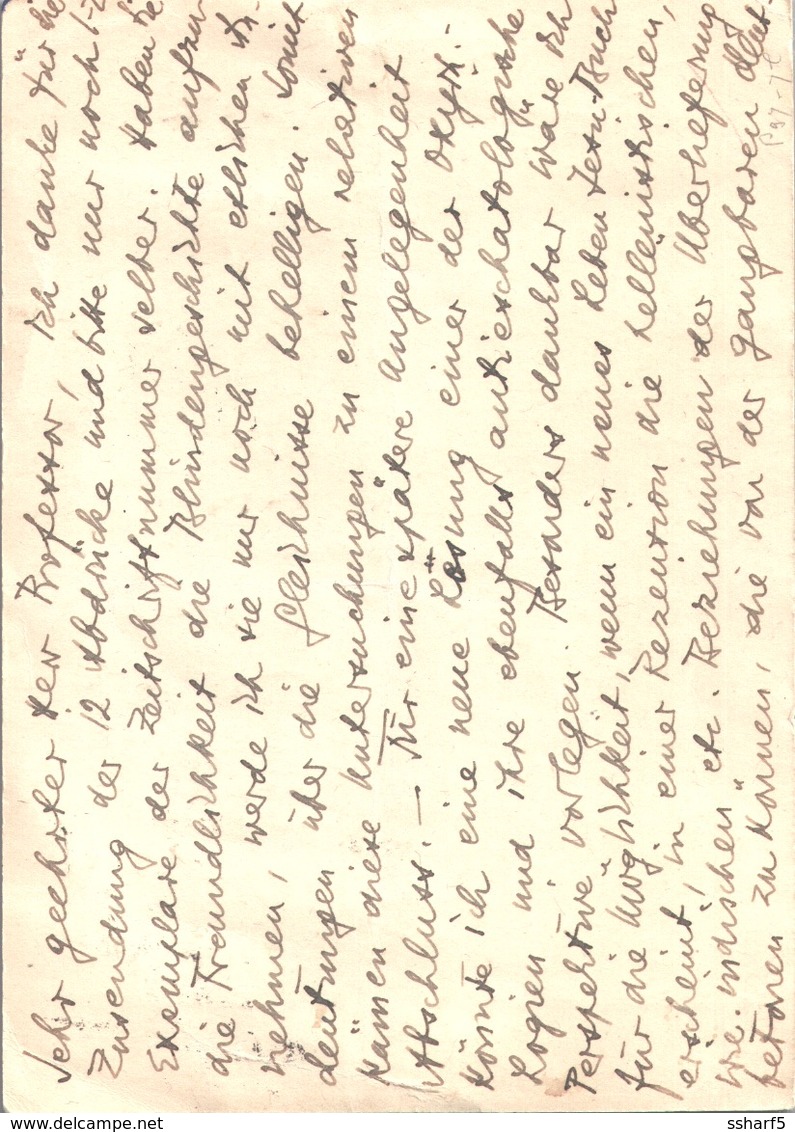 Sehr geehrter Herr Professor, Ich danke für die
Zusendung der 12 Abdrücke und bitte nur noch 1-2
Exemplare der Zeitschriftnummer selber. Haben Sie
die Freundlichkeit die Blindengeschichte aufzu-
nehmen, werde ich sie nur noch mit etlichen An-
deutungen über die Gleichnisse behelligen. Somit
kämen diese Untersuchungen zu einem relativen
Abschluss. — Für eine spätere Angelegenheit
könnte ich eine neue Lösung einer der Oxyrh.-
Logien und ihre ebenfalls antieschatologische
Perspektive vorlegen. Besonders dankbar wäre ich
für die Möglichkeit, wenn ein neues Leben Jesu-Buch
erscheint, in einer Rezension die hellenistischen,
wie indischen etc. Beziehungen der Überlieferung
betonen zu können, die von der gangbaren deut-
ssharf5